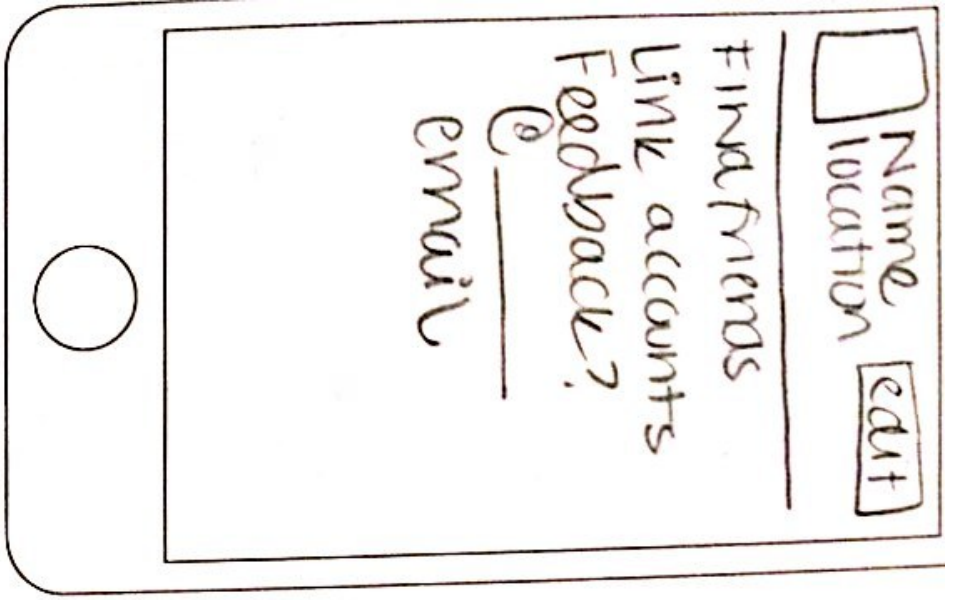 Name
location
edit
Find friends
Link accounts
Feedback?
@
email